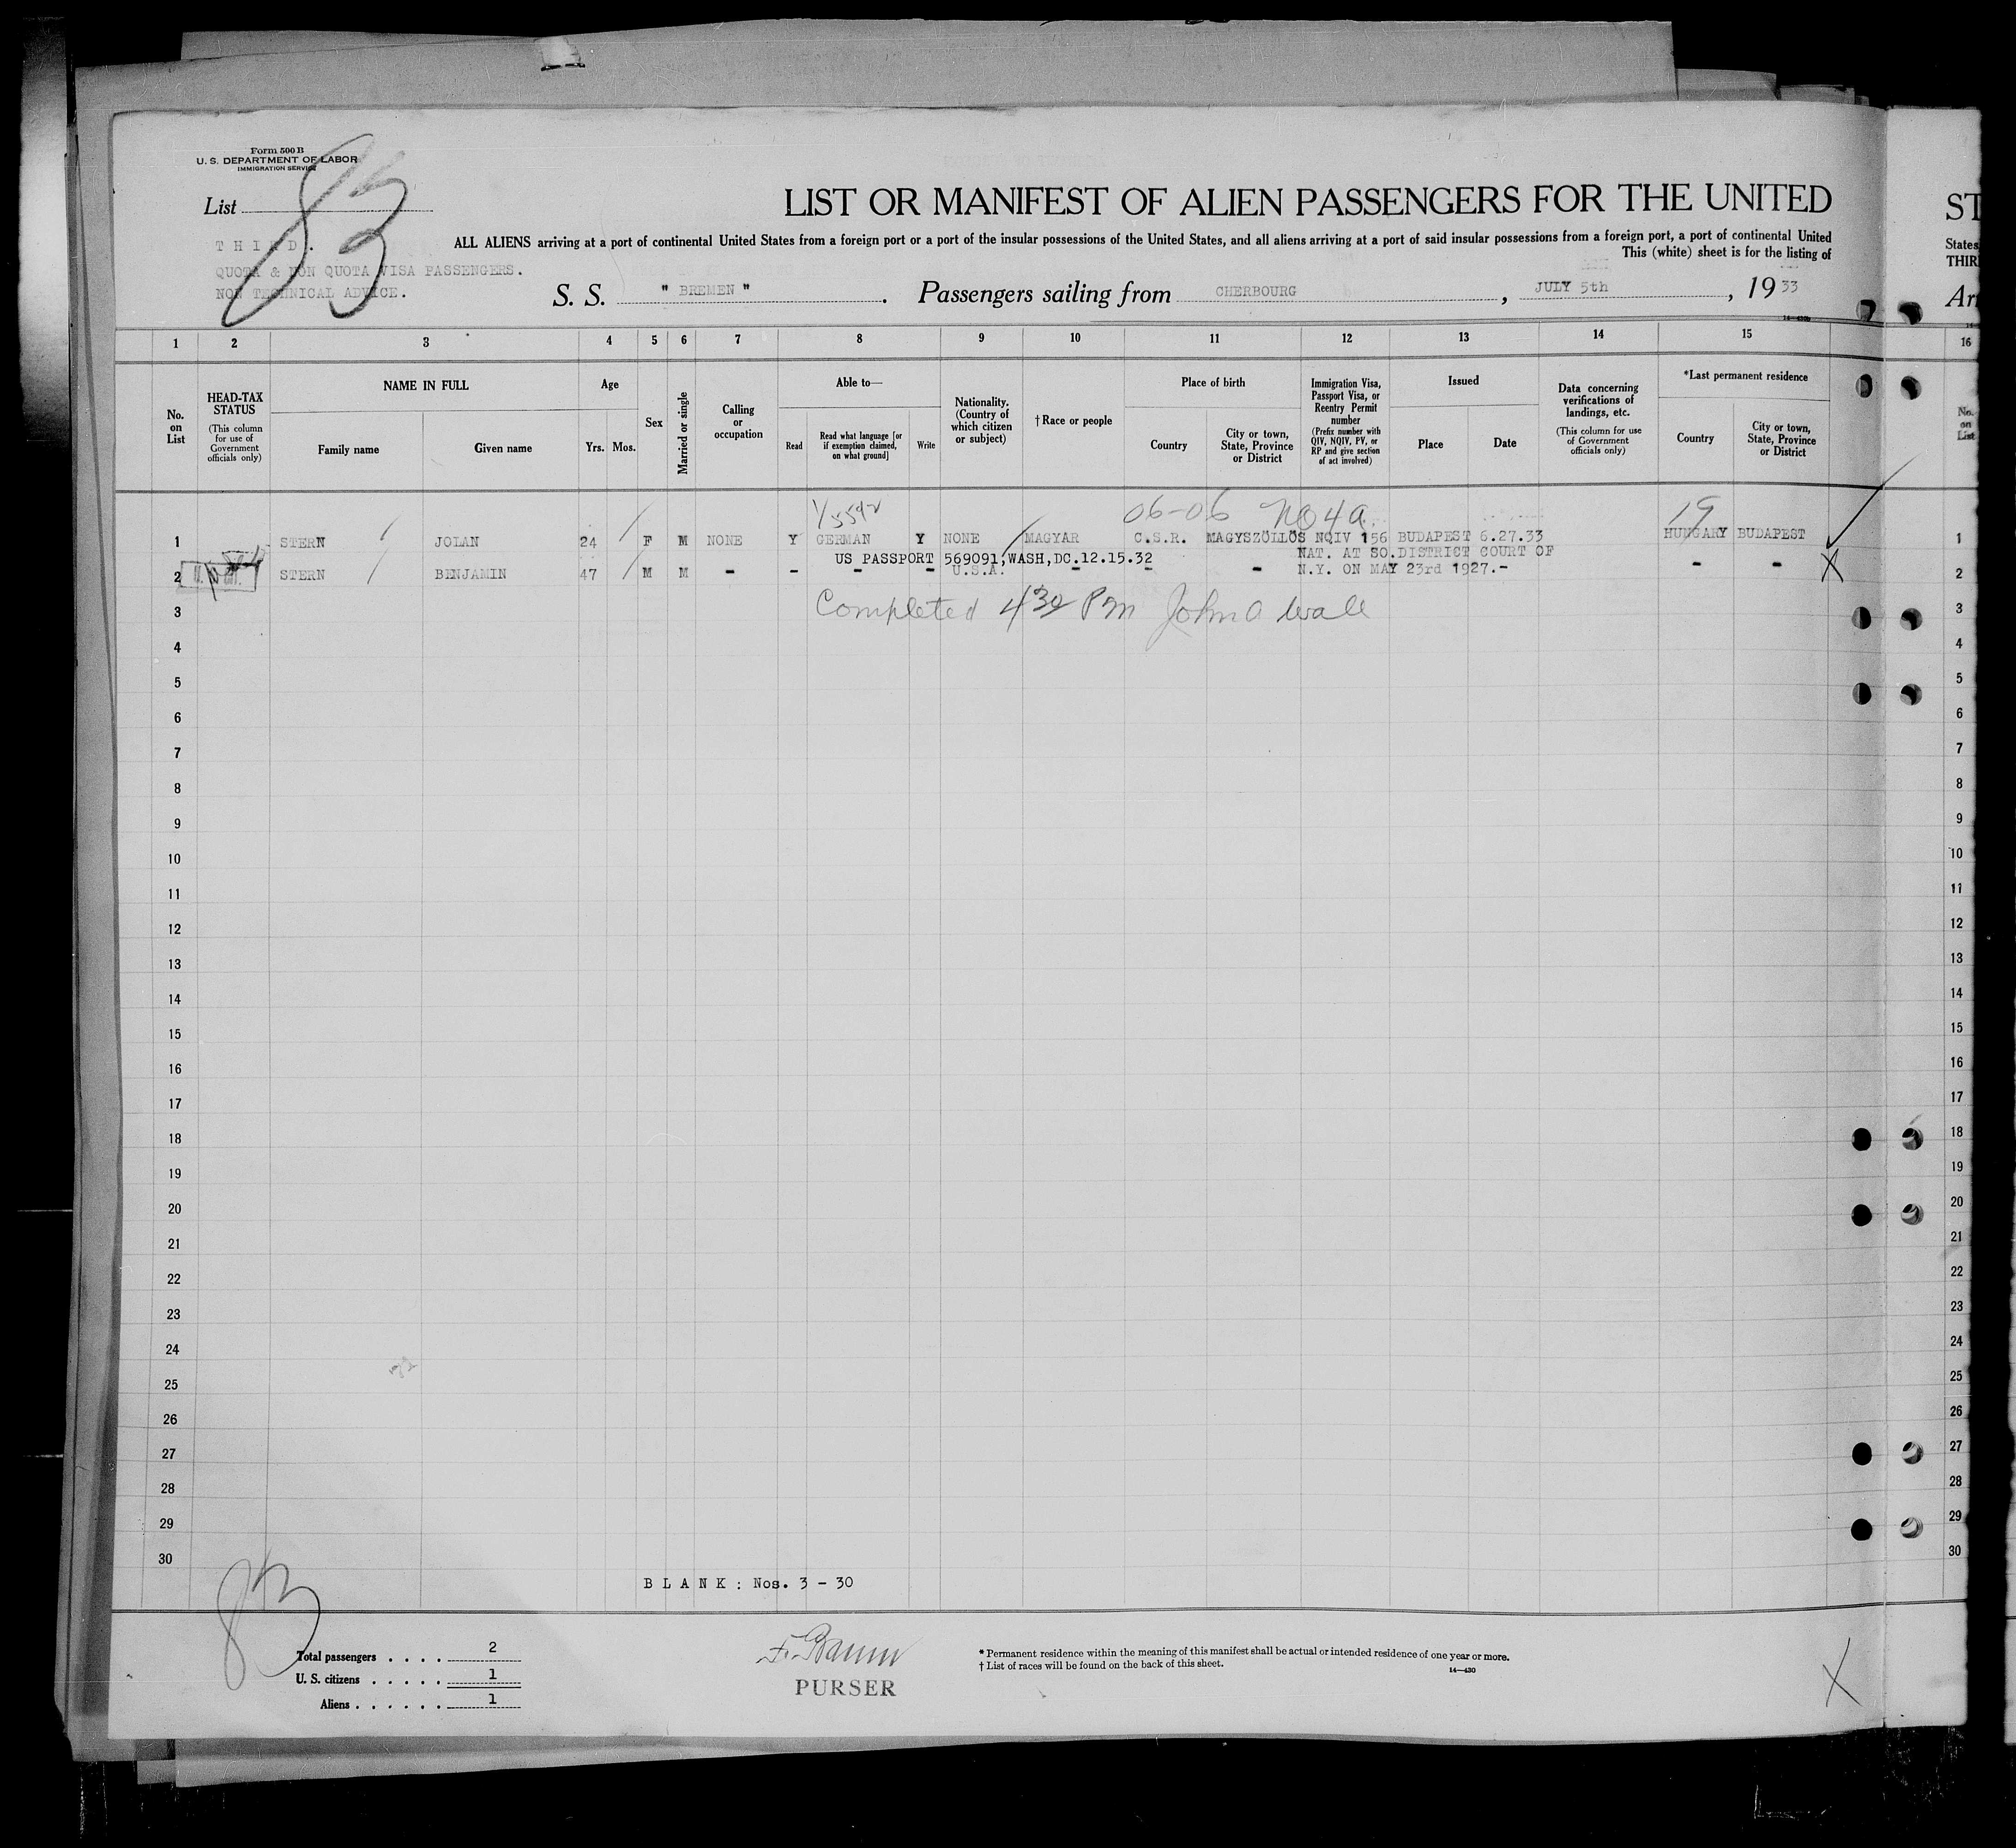 Form 500 B
U. S. DEPARTMENT OF LABOR
IMMIGRATION SERVICE
List
83
LIST OR MANIFEST OF ALIEN PASSENGERS FOR THE UNITED
ST
THIRD.
ALL ALIENS arriving at a port of continental United States from a foreign port or a port of the insular possessions of the United States, and all aliens arriving at a port of said insular possessions from a foreign port, a port of continental United
States
QUOTA & NON QUOTA VISA PASSENGERS.
This (white) sheet is for the listing of
THIR
NON TECHNICAL ADVICE.
S. S. " BREMEN ". Passengers sailing from CHERBOURG, JULY 5th, 1933
Arr
1 2 3 4 5 6 7 8 9 10 11 12 13 14 15 16
No. on List
HEAD-TAX STATUS (This column for use of Government officials only)
NAME IN FULL
Family name
Given name
Age
Yrs. Mos.
Sex
Married or single
Calling or occupation
Able to—
Read
Read what language [or if exemption claimed, on what ground]
Write
Nationality. (Country of which citizen or subject)
† Race or people
Place of birth
Country
City or town, State, Province or District
Immigration Visa, Passport Visa, or Reentry Permit number (Prefix number with QIV, NQIV, PV, or RP and give section of act involved)
Issued
Place
Date
Data concerning verifications of landings, etc. (This column for use of Government officials only)
*Last permanent residence
Country
City or town, State, Province or District
No. on List
06-06 NO 4a. 19
1 STERN JOLAN 24 F M NONE Y GERMAN Y NONE MAGYAR C.S.R. MAGYSZÖLLÖS NQIV 156 BUDAPEST 6.27.33 HUNGARY BUDAPEST 1
US PASSPORT 569091,WASH,DC.12.15.32 NAT. AT SO.DISTRICT COURT OF
2 STERN BENJAMIN 47 M M - - - - U.S.A. - - - N.Y. ON MAY 23rd 1927.- - - X 2
3 Completed 4 30 Pm John A Wall 3
4 4
5 5
6 6
7 7
8 8
9 9
10 10
11 11
12 12
13 13
14 14
15 15
16 16
17 17
18 18
19 19
20 20
21 21
22 22
23 23
24 24
25 25
26 26
27 27
28 28
29 29
30 30
BLANK: Nos. 3 - 30
83
Total passengers . . . . 2
U. S. citizens . . . . . 1
Aliens . . . . . . 1
F. Baum
PURSER
* Permanent residence within the meaning of this manifest shall be actual or intended residence of one year or more.
† List of races will be found on the back of this sheet.
14—430
X